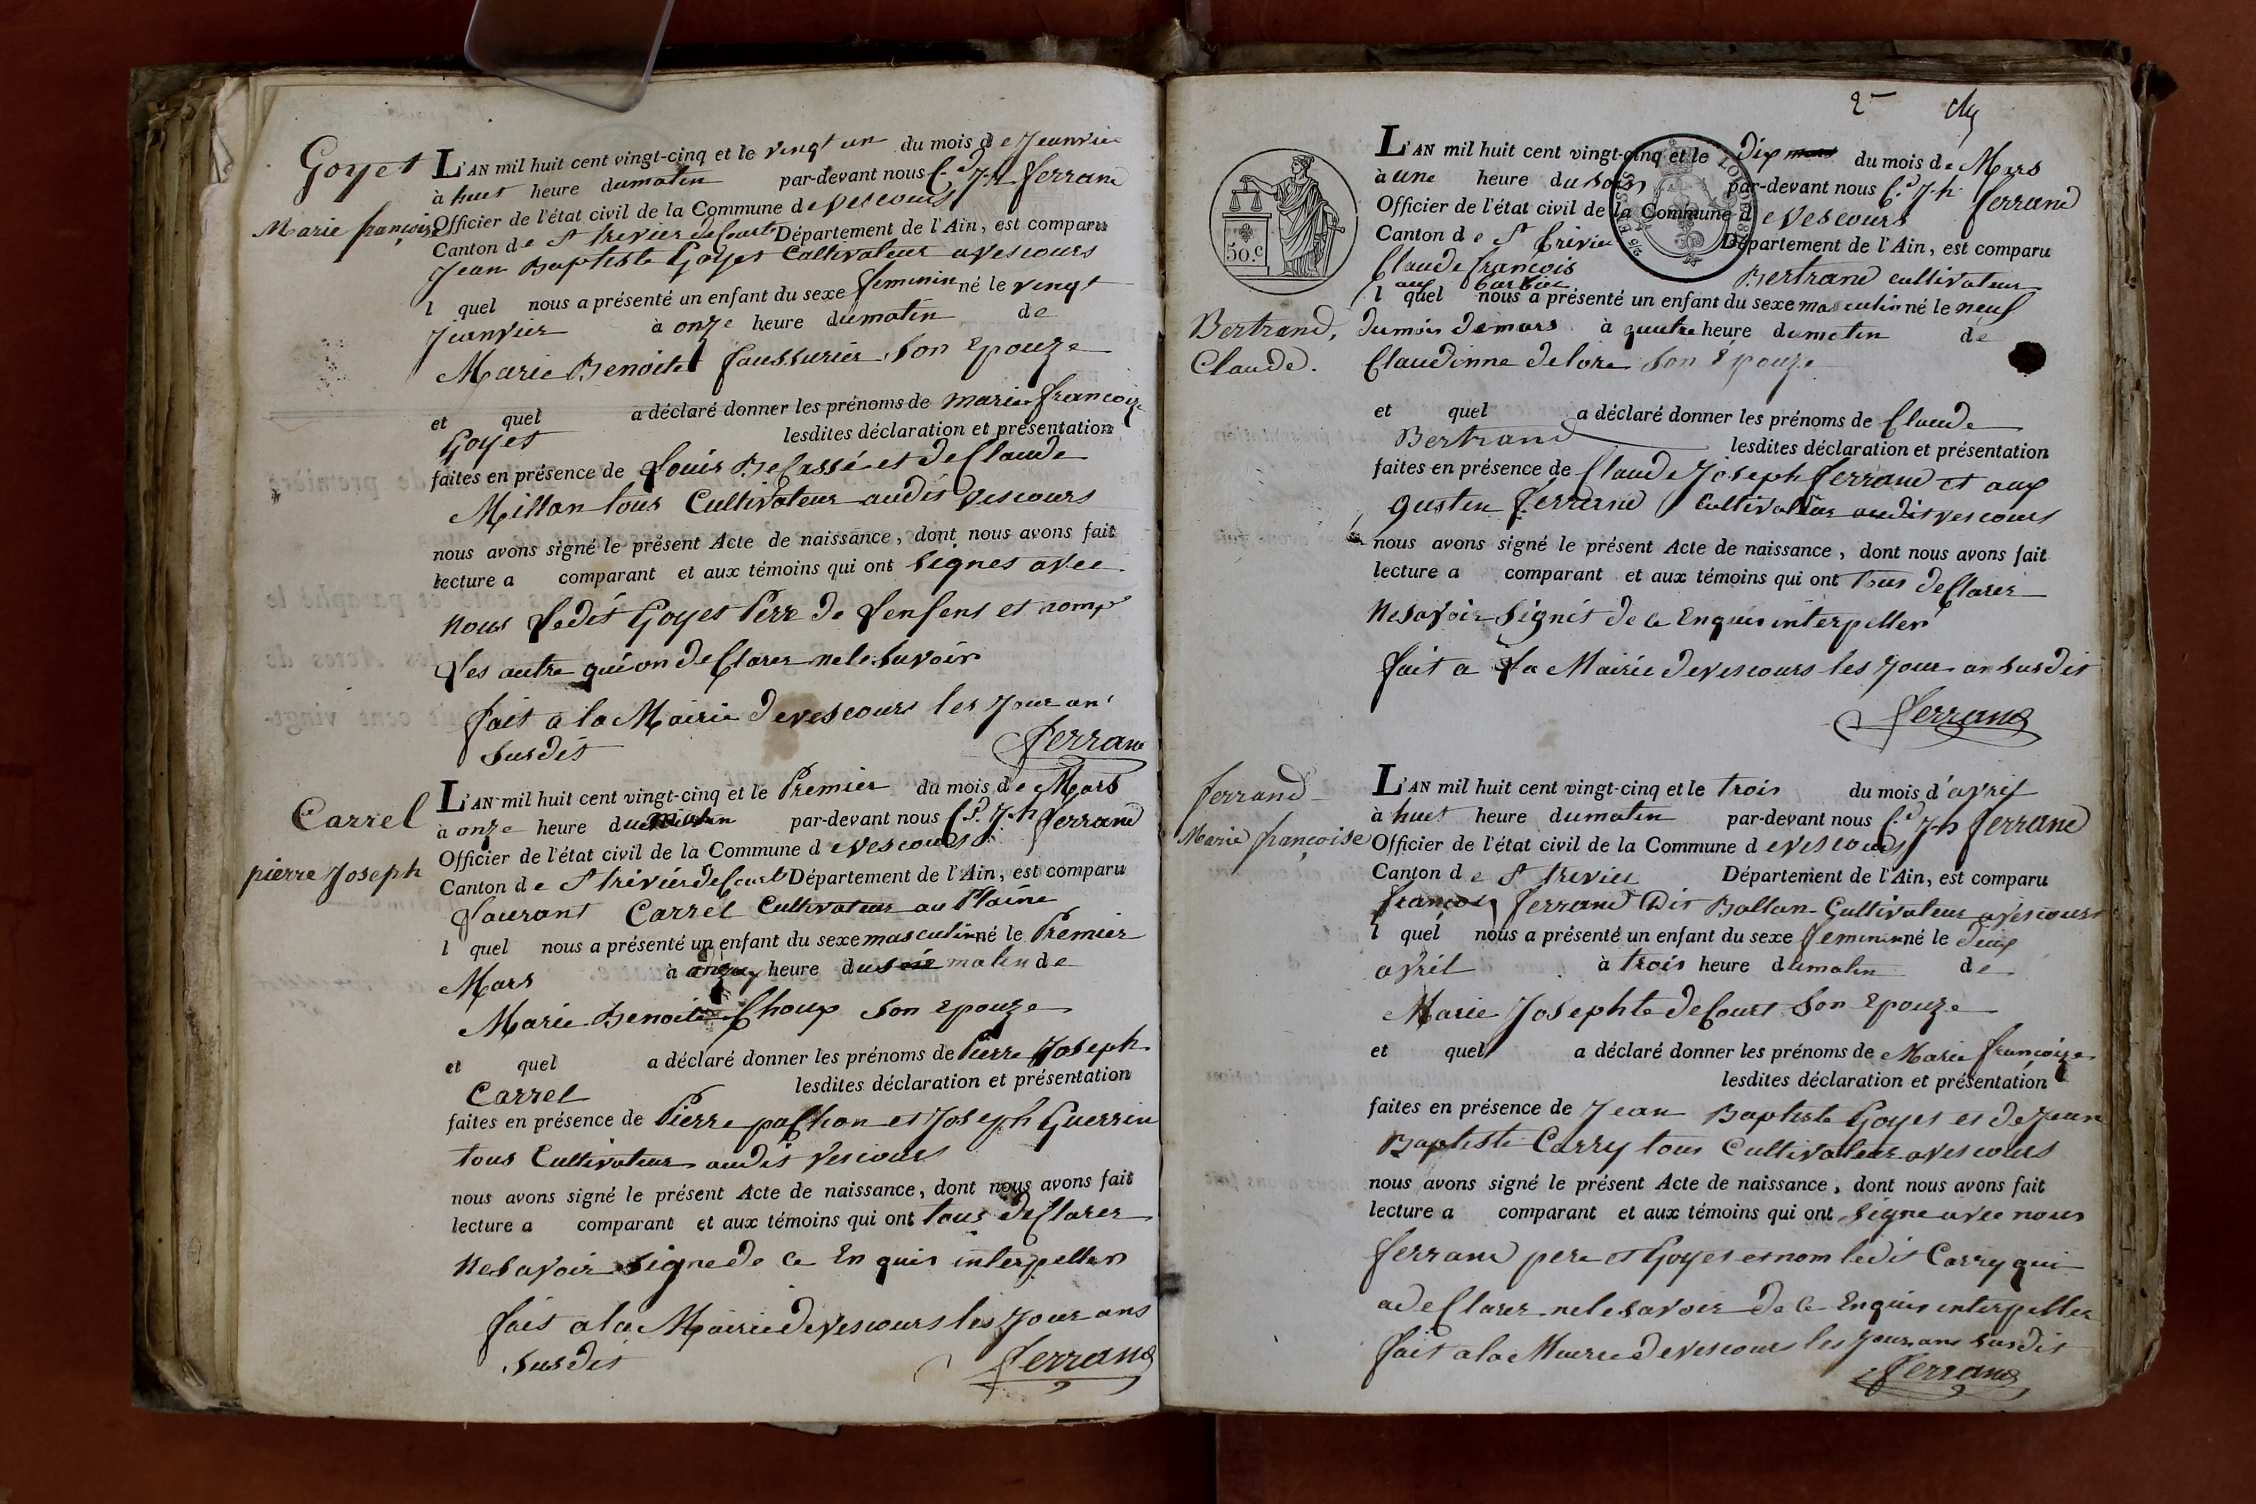 Goyet
Marie françoise
L'AN mil huit cent vingt-cinq et le vingt un du mois de Jeanvier
à huet heure dumatin par-devant nous C.d J.h ferrand
Officier de l'état civil de la Commune devescours
Canton de St trevier deCourt Département de l'Ain, est comparu
Jean Baptiste Goyet Cultivateur avescours
l quel nous a présenté un enfant du sexe feminin né le vingt
Jeanvier à onze heure dumatin de
Marie Benoite faussurier Son Epouze
et quel a déclaré donner les prénoms de marie françoize
Goyet lesdites déclaration et présentation
faites en présence de Louis BeCassé et deClaude
Millan tous Cultivateur audit Vescours
nous avons signé le présent Acte de naissance, dont nous avons fait
lecture a comparant et aux témoins qui ont Signes avec
nous Ledit Goyet Perr de Lenfent et nomp
Les autre quion deClarer nele Savoir
fait a la Mairie devescours les Jour an
Susdit ferrand
Carrel
pierre Joseph
L'AN mil huit cent vingt-cinq et le Premier du mois de Mars
à onze heure du par-devant nous C.d J.h ferrand
Officier de l'état civil de la Commune devescours
Canton de St trivier deCourt Département de l'Ain, est comparu
Laurant Carrel Cultivateur au Plaine
l quel nous a présenté un enfant du sexe masculin né le Premier
Mars à onze heure du soir matin de
Marie Benoite Choux Son epouze
et quel a déclaré donner les prénoms de Pierre Joseph
Carrel lesdites déclaration et présentation
faites en présence de Pierre paChon et Joseph Guerrin
tous Cultivateur audit Vescours
nous avons signé le présent Acte de naissance, dont nous avons fait
lecture a comparant et aux témoins qui ont tous deClarer
nesavoir Signe de Ce En quis interpeller
fait a la Mairie devescours les Jour ans
Susdit ferrand
2
L'AN mil huit cent vingt-cinq et le dix mars du mois de Mars
à une heure du Soir par-devant nous C.d J.h ferrand
Officier de l'état civil de la Commune devescours
Canton de St trivier Département de l'Ain, est comparu
Claude francois Bertrand cultivateur
au
l quel nous a présenté un enfant du sexe masculin né le neuf
50.c
Bertrand,
Claude.
dumois demars à quatre heure dumatin de
Claudinne delore Son Epouze
et quel a déclaré donner les prénoms de Claude
Bertrand lesdites déclaration et présentation
faites en présence de Claude Joseph ferrand et aux
gustin ferrand Cultivateur audit vescours
nous avons signé le présent Acte de naissance, dont nous avons fait
lecture a comparant et aux témoins qui ont tous deClarer
nesavoir Signés de Ce Enquis interpeller
fait a La Mairie devescours les Jour an Susdit
ferrand
ferrand
Marie françoise
L'AN mil huit cent vingt-cinq et le trois du mois d'avril
à huet heure dumatin par-devant nous C.d J.h ferrand
Officier de l'état civil de la Commune devescours
Canton de St trevier Département de l'Ain, est comparu
francois ferrand Dit Ballan Cultivateur avescours
l quel nous a présenté un enfant du sexe feminin né le deux
avril à trois heure dumatin de
Marie Josephte deCourt Son Epouze
et quel a déclaré donner les prénoms de Marie françoize
lesdites déclaration et présentation
faites en présence de Jean Baptiste Goyet et deJean
Baptiste Carry tous Cultivateur avescours
nous avons signé le présent Acte de naissance, dont nous avons fait
lecture a comparant et aux témoins qui ont Signe avec nous
ferrand pere et Goyet et nom ledit Carry qui
adeClarer nele savoir de Ce Enquis interpeller
fait a la Mairie devescours les Jour ans Susdit
ferrand